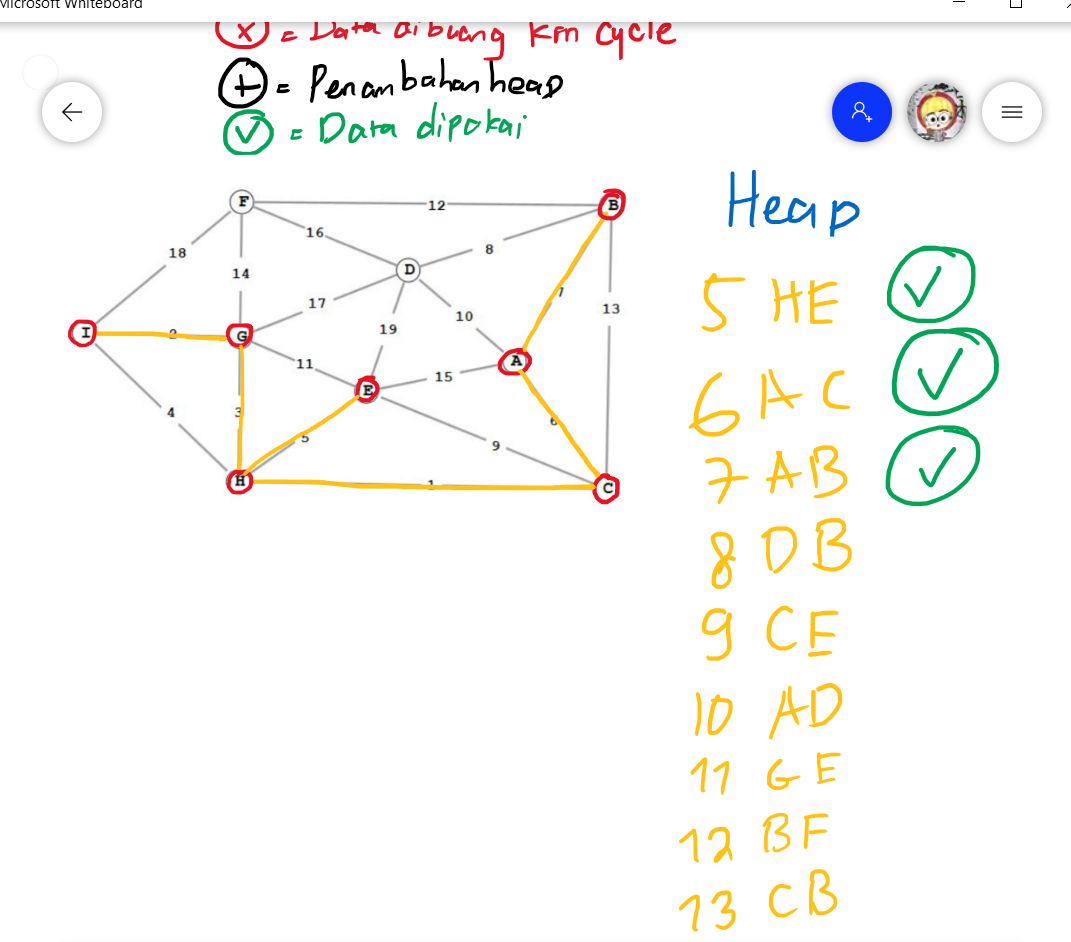 Microsoft Whiteboard
x = Data dibuang krn cycle
+ = Penambahan heap
✓ = Data dipakai
Heap
F 12 B
16
8
18
D
14
17
10
13
19
I 2 G
11
A
7
15
E
4
3
5
6
9
H 1 C
5 HE ✓
6 AC ✓
7 AB ✓
8 DB
9 CE
10 AD
11 GE
12 BF
13 CB